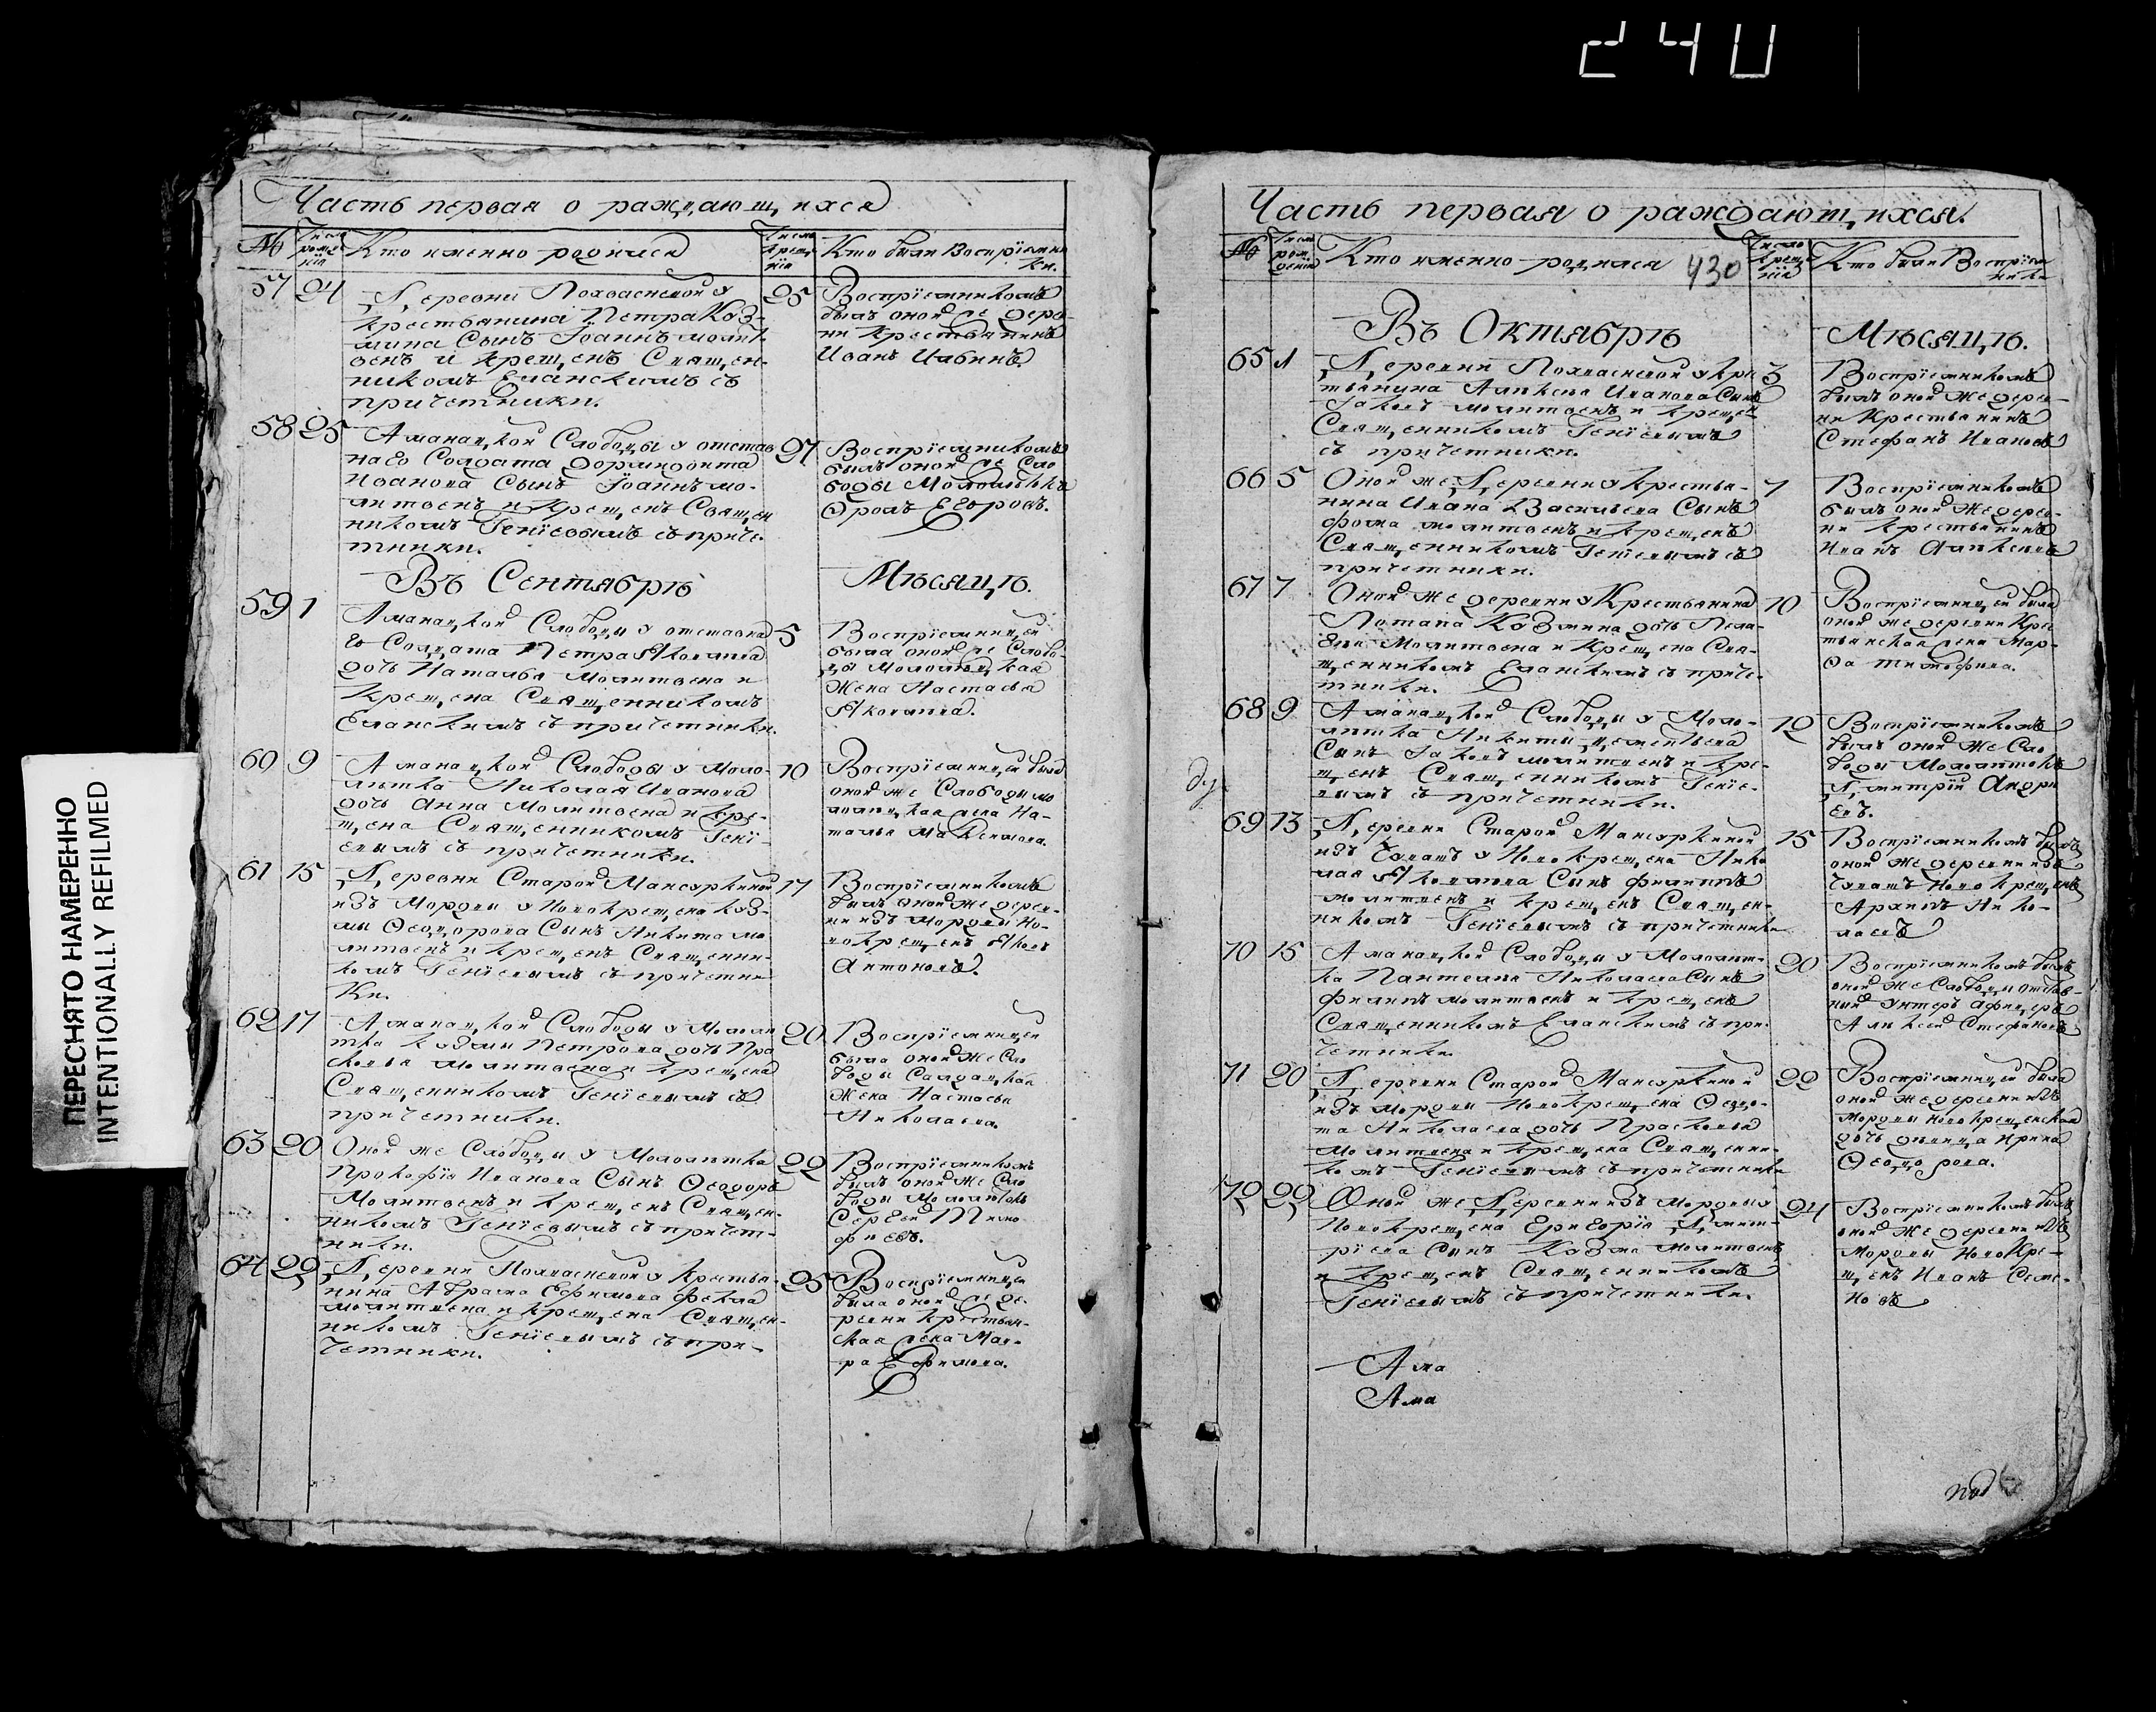 240
ПЕРЕСНЯТО НАМЕРЕННО
INTENTIONALLY REFILMED
Часть первая о раждающихся
№ Число рожденія Кто именно родился Число крещенія Кто были Воспріемники.
57 24 Деревни Похвисневой у
крестьянина Петра Коз-
мина Сынъ Іоаннъ молит-
венъ и крещенъ Священ-
никомъ Еланскимъ съ
причетники.
25 Воспріемникомъ
былъ оной же дерев-
ни крестьянинъ
Иванъ
58 25 Аманацкой Слободы у отстав
наго Солдата
Иванова Сынъ Іоаннъ мо-
литвенъ и крещенъ Священ
никомъ Геніевымъ съ приче-
тники.
27 Воспріемникомъ
былъ оной же Сло
боды
Егоровъ.
Въ Сентябрѣ Мѣсяцѣ.
59 1 Аманацкой Слободы у отставна
го Солдата Петра Яковлева
дочь Наталья Молитвена и
Крещена Священникомъ
Еланскимъ съ причетники.
5 Воспріемницей
была оной же Слобо-
ды
Жена Настасья
Яковлева.
60 9 Аманацкой Слободы у Моло-
Николая Иванова
дочь Анна Молитвена и кре-
щена Священникомъ Гені-
евымъ съ причетники.
10 Воспріемницей была
оной же Слободы мо
жена На-
талья Максимова.
61 15 Деревни Старой Мансуркиной
изъ Мордвы у Новокрещена Коз-
мы Ѳеодорова Сынъ Никита мо
литвенъ и крещенъ Священни-
комъ Геніевымъ съ причетни
ки.
17 Воспріемникомъ
былъ оной же дерев-
ни изъ Мордвы Но-
вокрещенъ Яковъ
Антоновъ.
62 17 Аманацкой Слободы у
Козмы Петрова дочь Пра
сковья молитвена и крещена
Священникомъ Геніевымъ съ
причетники.
20 Воспріемницей
была оной же Сло
боды Салдацкая
Жена Настасья
Николаева.
63 20 Оной же Слободы у
Прокофія Иванова Сынъ Ѳеодоръ
Молитвенъ и крещенъ Священ-
никомъ Геніевымъ съ причет-
ники.
22 Воспріемникомъ
былъ оной же Сло
боды
Сергей Тимо
феевъ.
64 22 Деревни Похвисневой у крестья-
нина Абрама Ефимова Фекла
молитвена и крещена Священ-
никомъ Геніевымъ съ при-
четники.
25 Воспріемницей
была оной же де-
ревни крестьян-
ская жена Мав-
ра Ефимова.
Часть первая о раждающихся.
№ Число рожденія Кто именно родился 430 Число крещенія Кто были Воспріемники
Въ Октябрѣ Мѣсяцѣ.
65 1 Деревни Похвисневой у Крес
тьянина Алексея Иванова Сынъ
Іаковъ молитвенъ и крещен
Священникомъ Геніевымъ
съ причетники.
3 Воспріемникомъ
былъ оной же дерев-
ни Крестьянинъ
Стефанъ Ивановъ
66 5 Оной же Деревни у Крестья-
нина Ивана Васильева Сынъ
Фома молитвенъ и крещенъ
Священникомъ Геніевымъ съ
причетники.
7 Воспріемникомъ
былъ оной же дерев-
ни крестьянинъ
Иванъ Алексеевъ
67 7 Оной же деревни у Крестьянина
Потапа Козмина дочь Пела-
гея Молитвена и Крещена Свя-
щенникомъ Еланскимъ съ приче-
тники.
10 Воспріемницей была
оной же деревни Крес
тьянская жена Мар-
ѳа Тимофеева.
68 9 Аманацкой Слободы у Моло-
Никиты Дементьева
Сынъ Іаковъ молитвенъ и кре-
щенъ Священникомъ Геніе-
вымъ съ причетники.
12 Воспріемникомъ
былъ оной же Сло
боды
Дмитрій Андре
евъ.
69 13 Деревни Старой Мансуркиной
изъ Чувашъ у Новокрещена Нико
лая Яковлева Сынъ Филиппъ
молитвенъ и крещенъ Священ-
никомъ Геніевымъ съ причетники
15 Воспріемникомъ былъ
оной же деревни изъ
Чувашъ Новокрещенъ
Архипъ Нико-
лаевъ
70 15 Аманацкой Слободы у
Пантелея Николаева Сынъ
Филиппъ молитвенъ и крещенъ
Священникомъ Еланскимъ съ при-
четники.
20 Воспріемникомъ былъ
оной же Слободы отстав-
ной Унтеръ Афицеръ
Алексей Стефановъ
71 20 Деревни Старой Мансуркиной
изъ мордвы Новокрещена Ѳедо-
та Николаева дочь Прасковья
молитвена и крещена Священни-
комъ Геніевымъ съ причетники
22 Воспріемницей была
оной же деревни изъ
Мордвы новокрещенская
дочь девица Ирина
Ѳеодорова.
72 22 Оной же Деревни изъ мордвы у
Новокрещена Григорія Дмит-
ріева Сынъ Козма молитвенъ
и крещенъ Священникомъ
Геніевымъ съ причетники.
24 Воспріемникомъ былъ
оной же деревни изъ
Мордвы Новокре-
щенъ Иванъ Семе-
новъ
Ама
Ама